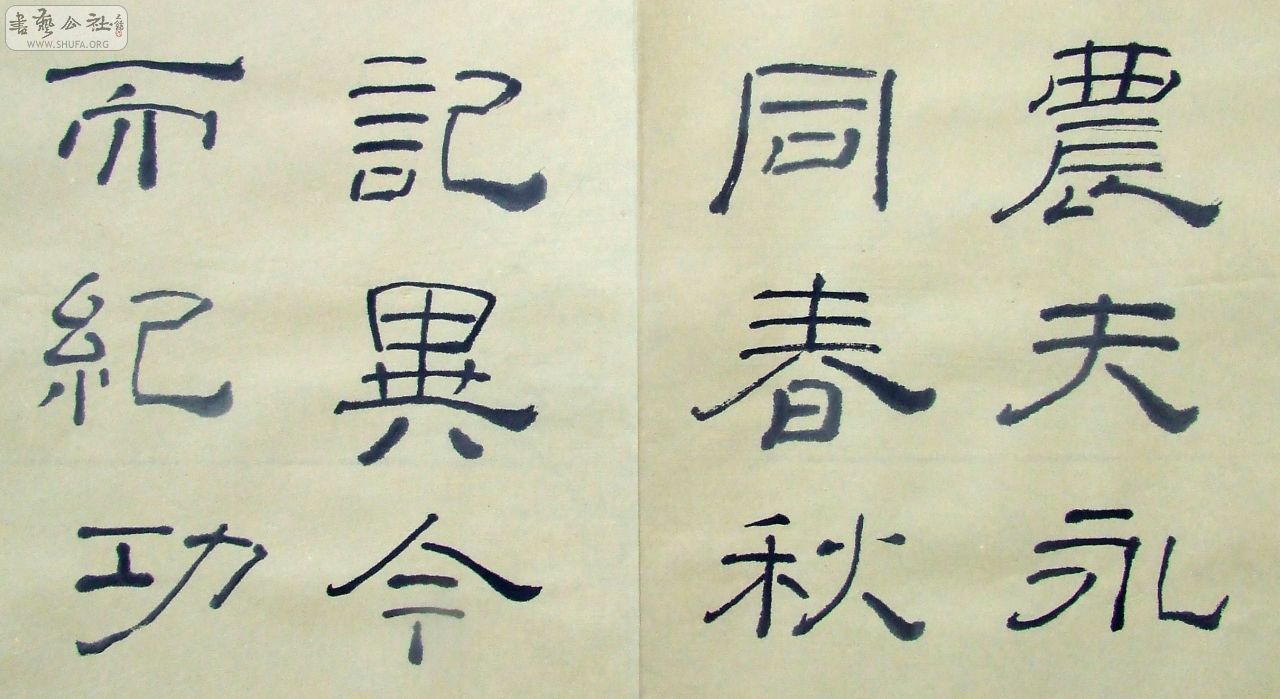 農夫永
同春秋
記異今
而紀功
書藝公社
WWW.SHUFA.ORG